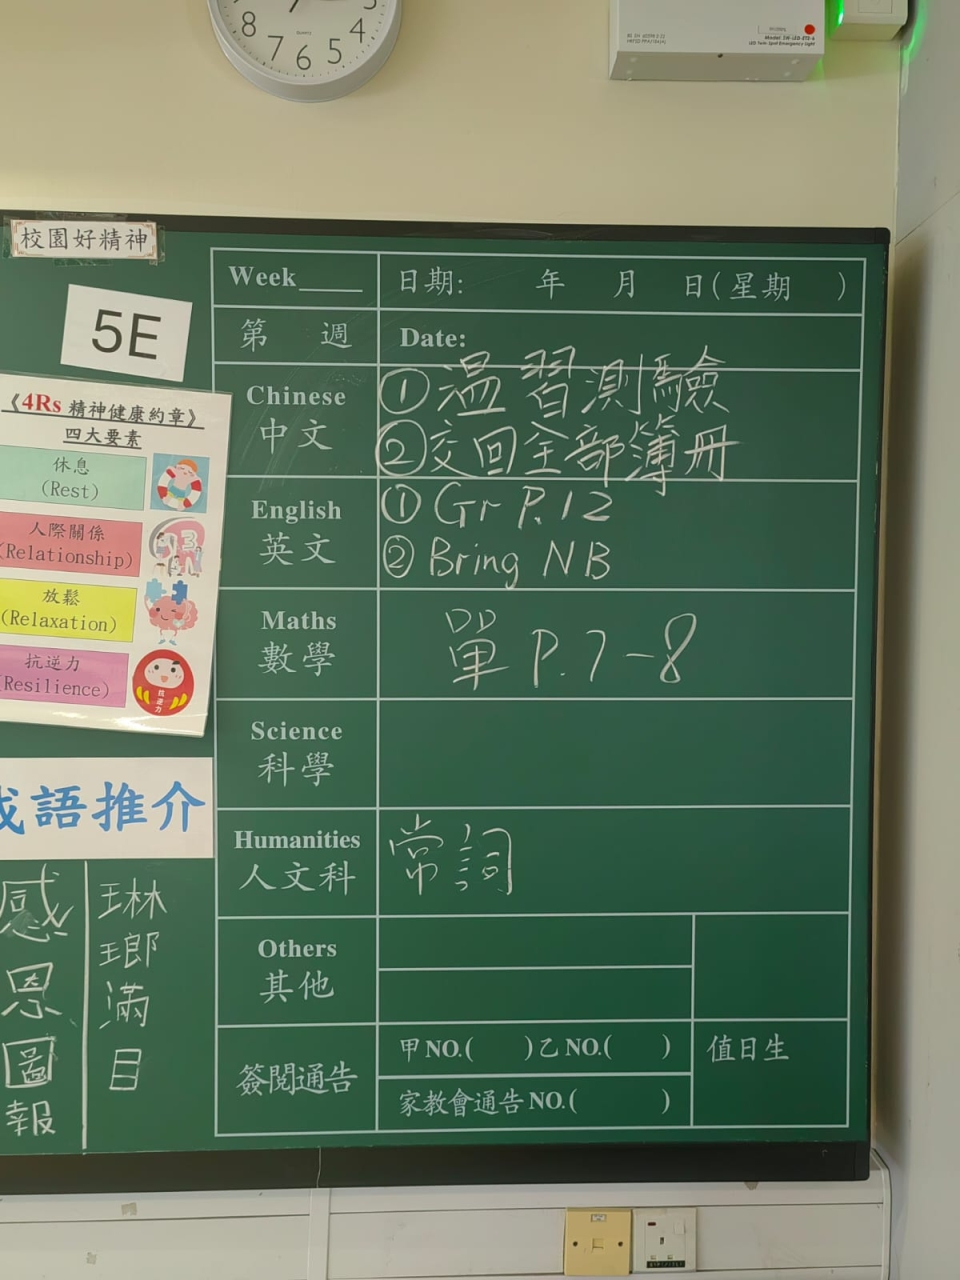 8 7 6 5 4
校園好精神
5E
《4Rs 精神健康約章》
四大要素
休息
(Rest)
人際關係
(Relationship)
放鬆
(Relaxation)
抗逆力
(Resilience)
抗逆力
成語推介
感恩圖報
琳瑯滿目
Week____ 日期: 年 月 日(星期 )
第 週 Date:
Chinese
中文
①溫習測驗
②交回全部簿冊
English
英文
① Gr P.12
② Bring NB
Maths
數學
單 P.7-8
Science
科學
Humanities
人文科
常詞
Others
其他
簽閱通告
甲 NO.( )乙 NO.( )
家教會通告 NO.( )
值日生